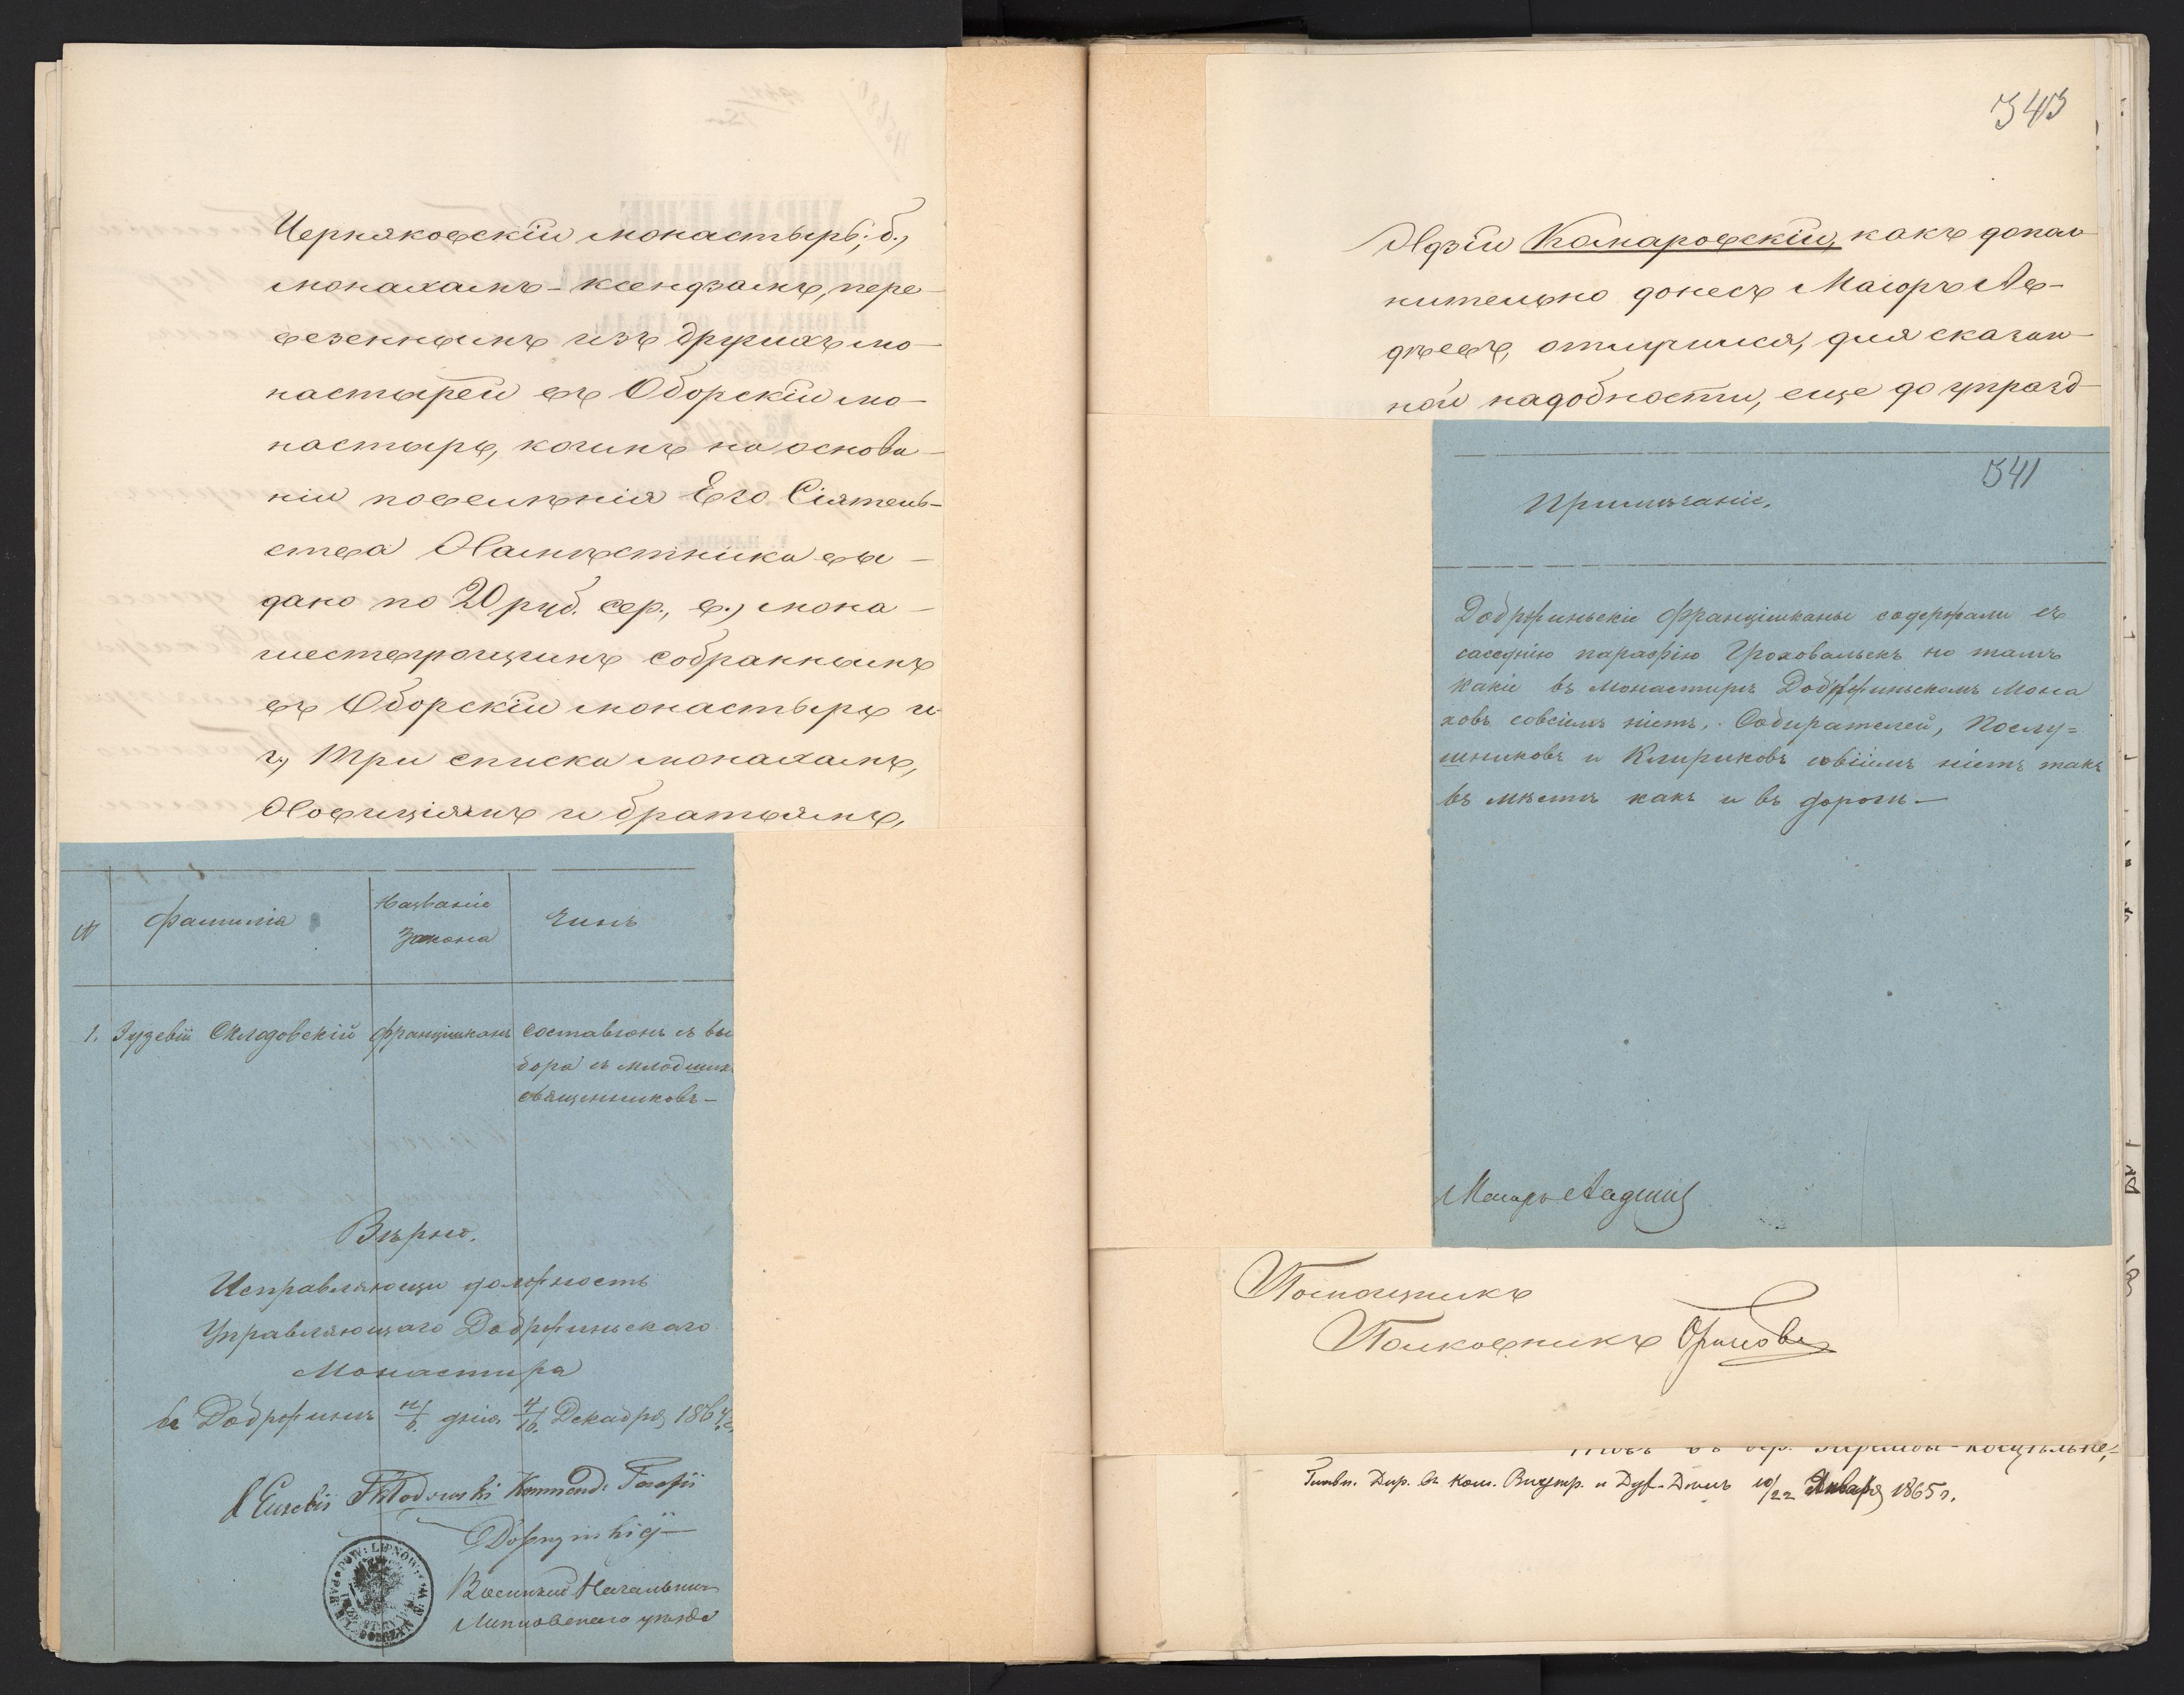 Черняковскій монастырь; б.,
монахамъ-ксендзамъ, пере-
везеннымъ изъ другихъ мо-
настырей въ Оборскій мо-
настырь, коимъ на основа-
ніи повелѣнія Его Сіятель-
ства Намѣстника вы-
дано по 20 руб. сер., в., мона-
шествующимъ собраннымъ
въ Оборскій монастырь и
г., три списка монахамъ,
Новиціямъ и братьямъ,
№
Фамилія
Названіе
Закона
Чинъ
1. Эузебій Склодовскій
Францишканъ
составлонъ съ вы
бора съ младших
священниковъ —
Вѣрно.
Исправляющи должность
Управляющаго Добржиньскаго
Монастира
въ Добржинѣ дня 4/16. Декабря 1864 г.
X Euzebii Skłodowski Kommend. Parafii
Dobrzyńskiej —
Военный Начальникъ
Липновскаго уѣзда
343
Адзій Комаровскій, какъ допол
нительно донесъ Маіоръ Ав-
дѣевъ, отлучился, для сказан-
ной надобности, еще до упразд
341
Примѣчаніе.
Добржиньскіе Францішканы содержали съ
сосѣднію парафію Гроховальскъ но тамъ
какіе въ Монастирѣ Добржиньскомъ Мона
ховъ совсіемъ ніетъ. Собирателей, Послу=
шниковъ и Клириковъ совіемъ ніетъ такъ
въ мѣстѣ какъ и въ дороги —
Маіоръ
Помощникъ
Полковникъ
Дир. въ Ком. Внутр. и Дух. Дѣлъ 10/22 Января 1865 г.